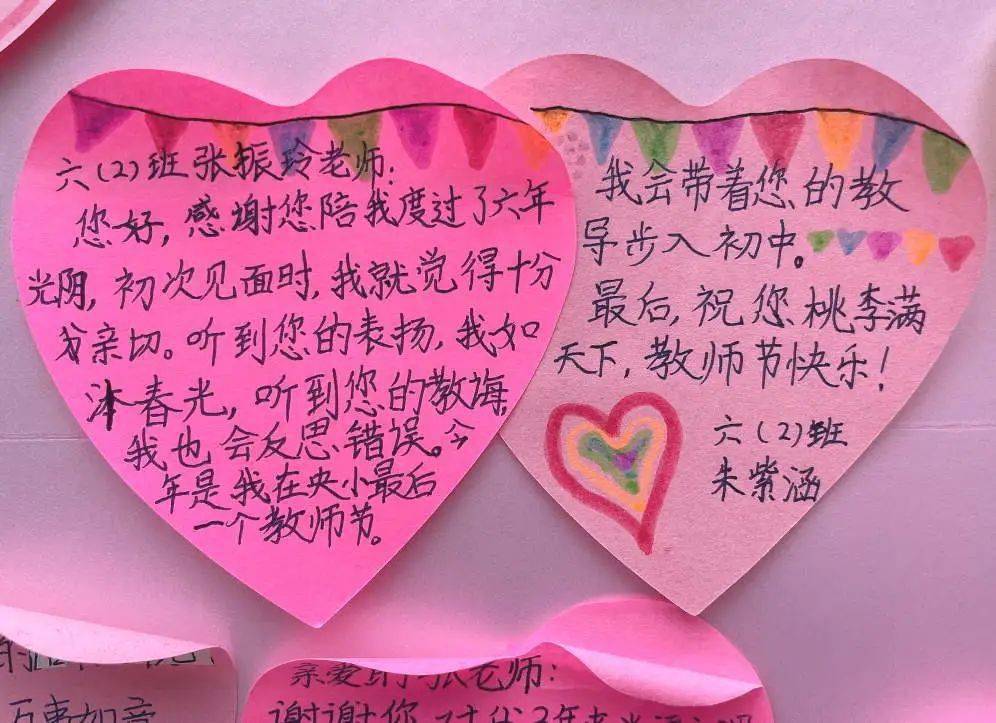 六(2)班张振玲老师:
您好,感谢您陪我度过了六年
光阴,初次见面时,我就觉得十分
分亲切。听到您的表扬,我如
沐春光,听到您的教诲,
我也会反思错误。今
年是我在央小最后
一个教师节。
我会带着您的教
导步入初中。
最后,祝您桃李满
天下,教师节快乐!
六(2)班
朱紫涵
万事如意
亲爱的张老师:
谢谢您